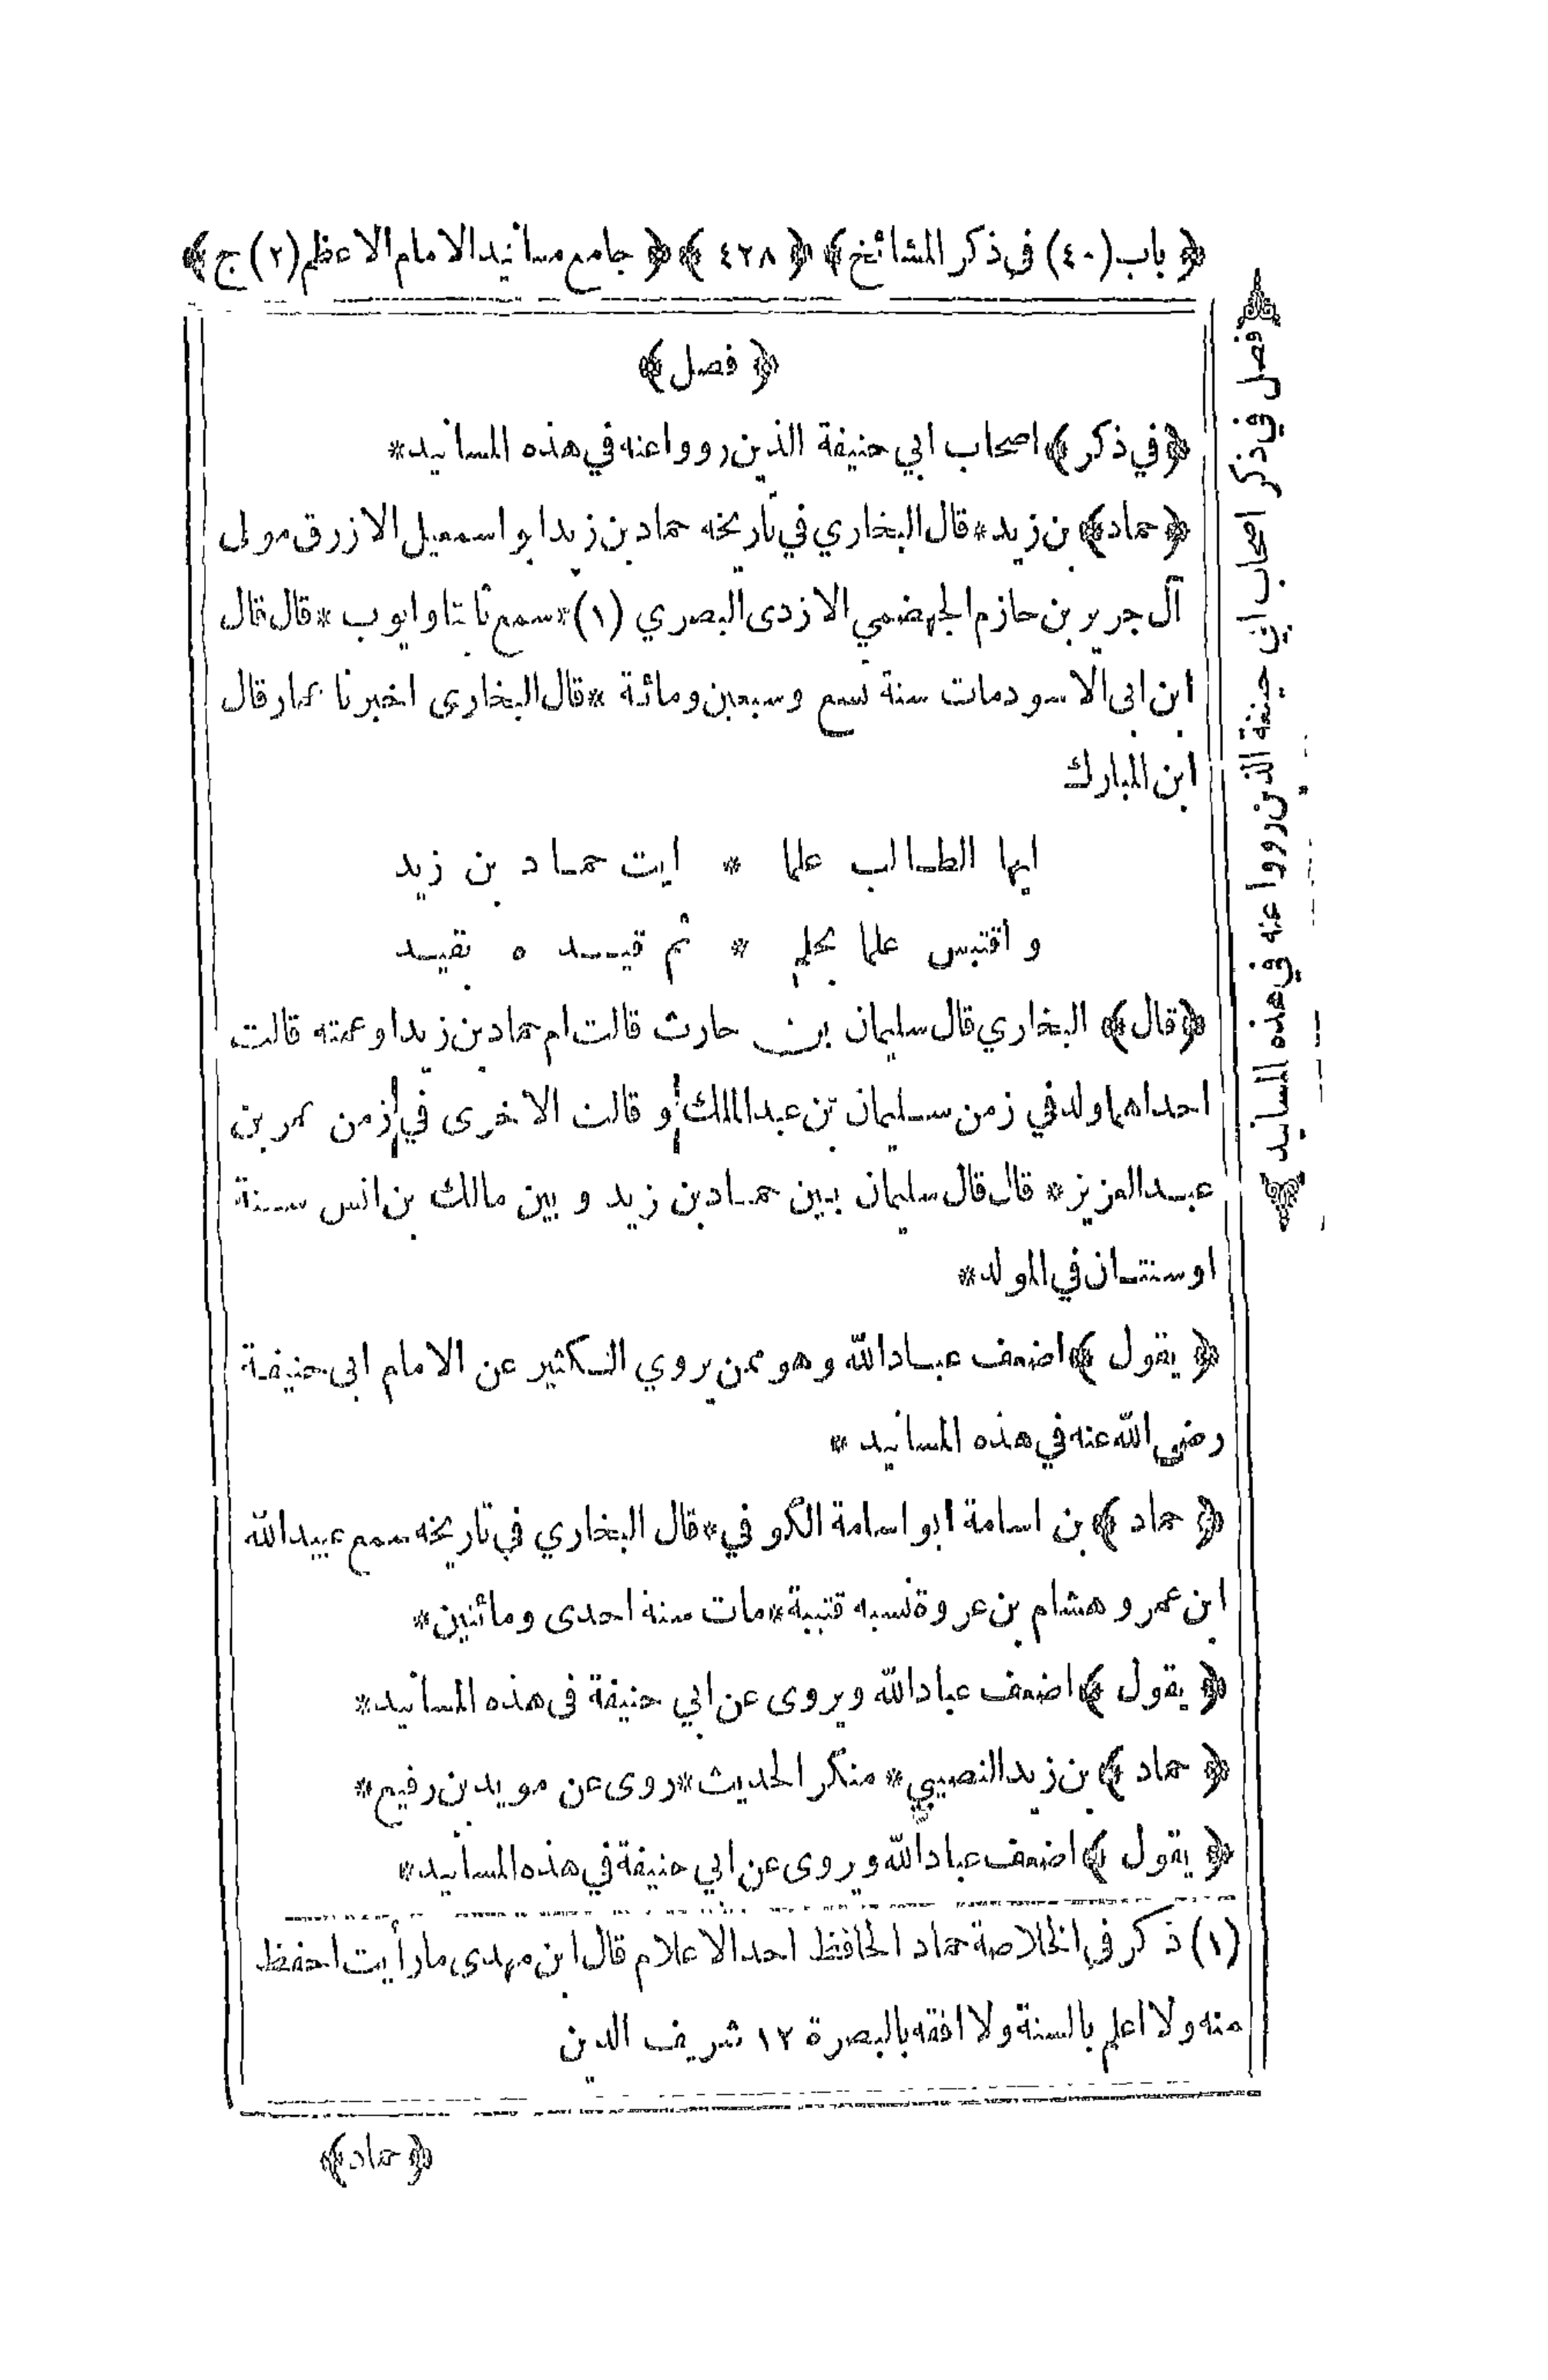 ﴿ باب (٤٠) في ذكر المشائخ ﴾ ﴿ ٤٢٨ ﴾ ﴿ جامع مسانيد الامام الاعظم (٢) ج ﴾
﴿ فصل ﴾
﴿ في ذكر ﴾ اصحاب ابي حنيفة الذين رووا عنه في هذه المسانيد *
﴿ حماد ﴾ بن زيد * قال البخاري في تاريخه حماد بن زيد ابو اسمعيل الازرق مولى
آل جرير بن حازم الجهضمي الازدى البصري (١) * سمع ثابتا وايوب * قال قال
ابن ابى الاسود مات سنة تسع وسبعين ومائة * قال البخارى اخبرنا عمار قال
ابن المبارك
ايها الطالب علما * ايت حماد بن زيد
واقتبس علما بحلم * ثم قيده بقيد
﴿ قال ﴾ البخاري قال سليمان بن حارث قالت ام حماد بن زيد او عمته قالت
احداهما ولد في زمن سليمان بن عبد الملك او قالت الاخرى في زمن عمر بن
عبد العزيز * قال قال سليمان بين حماد بن زيد وبين مالك بن انس سنة
او سنتان في المولد *
﴿ يقول ﴾ اضعف عباد الله وهو ممن يروي الكثير عن الامام ابى حنيفة
رضى الله عنه في هذه المسانيد *
﴿ حماد ﴾ بن اسامة ابو اسامة الكوفي * قال البخاري في تاريخه سمع عبيد الله
ابن عمر وهشام بن عروة نسبه قتيبة * مات سنة احدى ومائتين *
﴿ يقول ﴾ اضعف عباد الله ويروى عن ابي حنيفة فى هذه المسانيد *
﴿ حماد ﴾ بن زيد النصيبي * منكر الحديث * روى عن مويد بن رفيع *
﴿ يقول ﴾ اضعف عباد الله ويروى عن ابي حنيفة في هذه المسانيد *
(١) ذكر في الخلاصة حماد الحافظ احد الاعلام قال ابن مهدى ما رأيت احفظ
منه ولا اعلم بالسنة ولا افقه بالبصرة ١٢ شريف الدين
﴿ حماد ﴾
فصل في ذكر اصحاب ابي حنيفة الذين رووا عنه في هذه المسانيد